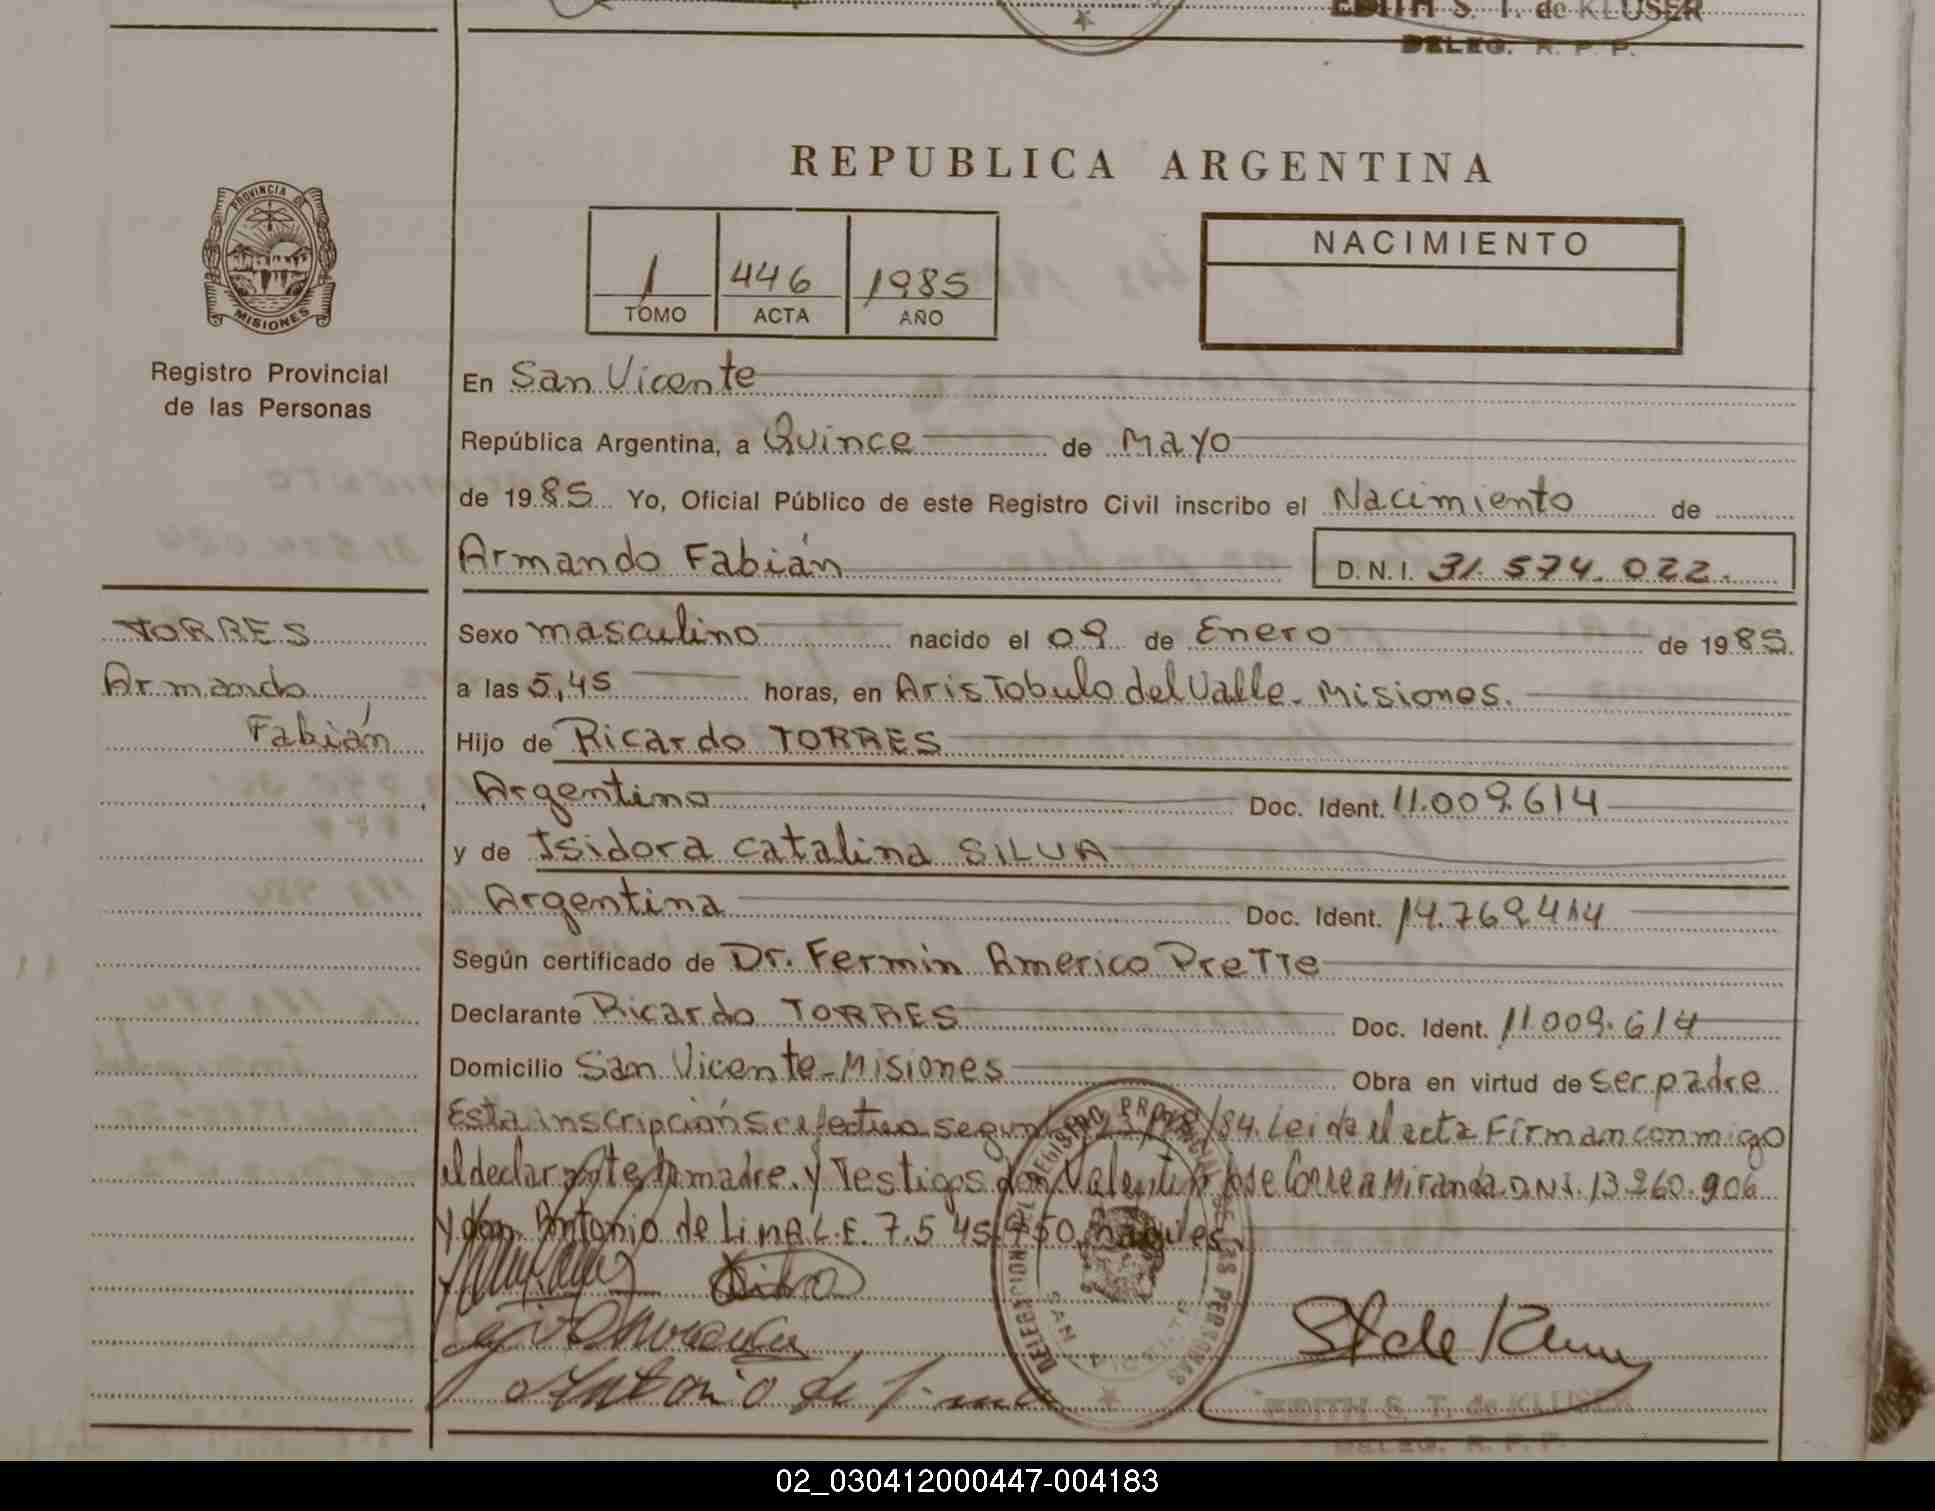 EDITH S. T. de KLUSER
DELEG. R. P. P.
REPUBLICA ARGENTINA
PROVINCIA DE
MISIONES
Registro Provincial
de las Personas
1 446 1985
TOMO ACTA AÑO
NACIMIENTO
En San Vicente
República Argentina, a Quince de Mayo
de 1985 Yo, Oficial Público de este Registro Civil inscribo el Nacimiento de
Armando Fabián D.N.I. 31.574.022.
TORRES
Armando
Fabián
Sexo masculino nacido el 09 de Enero de 1985.
a las 5,45 horas, en Aristobulo del Valle - Misiones.
Hijo de Ricardo TORRES
Argentino Doc. Ident. 11.009.614
y de Isidora Catalina SILVA
Argentina Doc. Ident. 14.769.414
Según certificado de Dr. Fermin Americo Prette
Declarante Ricardo TORRES Doc. Ident. 11.009.614
Domicilio San Vicente - Misiones Obra en virtud de ser padre
Esta inscripción se efectua segun /84. Leida el acta Firman conmigo
el declarante la madre y Testigos don Valentin Jose Correa Miranda D.N.I. 13.260.906
y don Antonio de Lima L.E. 7.545.950
Silva
Antonio de Lima
St de Kluser
EDITH S. T. de KLUSER
DELEG. R. P. P.
02_030412000447-004183